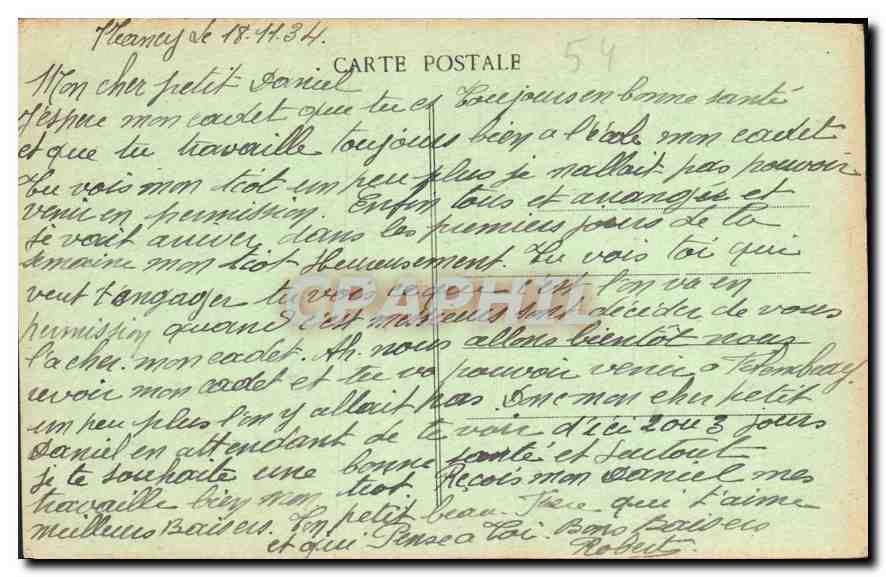 Nancy le 18.11.34.
54
CARTE POSTALE
Mon cher petit Daniel
J'espere mon cadet que tu es toujours en bonne santé
et que tu travaille toujours bien a l'école mon cadet
Tu vois mon tiot un peu plus je nallait pas pouvoir
venir en permission. Enfin tous et arranger et
je vait arriver dans les premiers jours de la
semaine mon tiot Heureusement. Tu vois toi qui
veut t'engager tu vois ce que c'est l'on va en
permission quand c'est messieurs sont décider de vous
l'acher. mon cadet. Ah. nous allons bientôt nous
revoir mon cadet et tu va pouvoir venir a
un peu plus l'on y allait pas. Donc mon cher petit
Daniel en attendant de te voir d'ici 2 ou 3 jours
je te souhaite une bonne santé et surtout
travaille bien mon tiot Reçois mon Daniel mes
meilleurs Baisers. Ton petit beau frere qui t'aime
et qui Pense a Toi. Bons Baisers
Robert
CPAPHIL